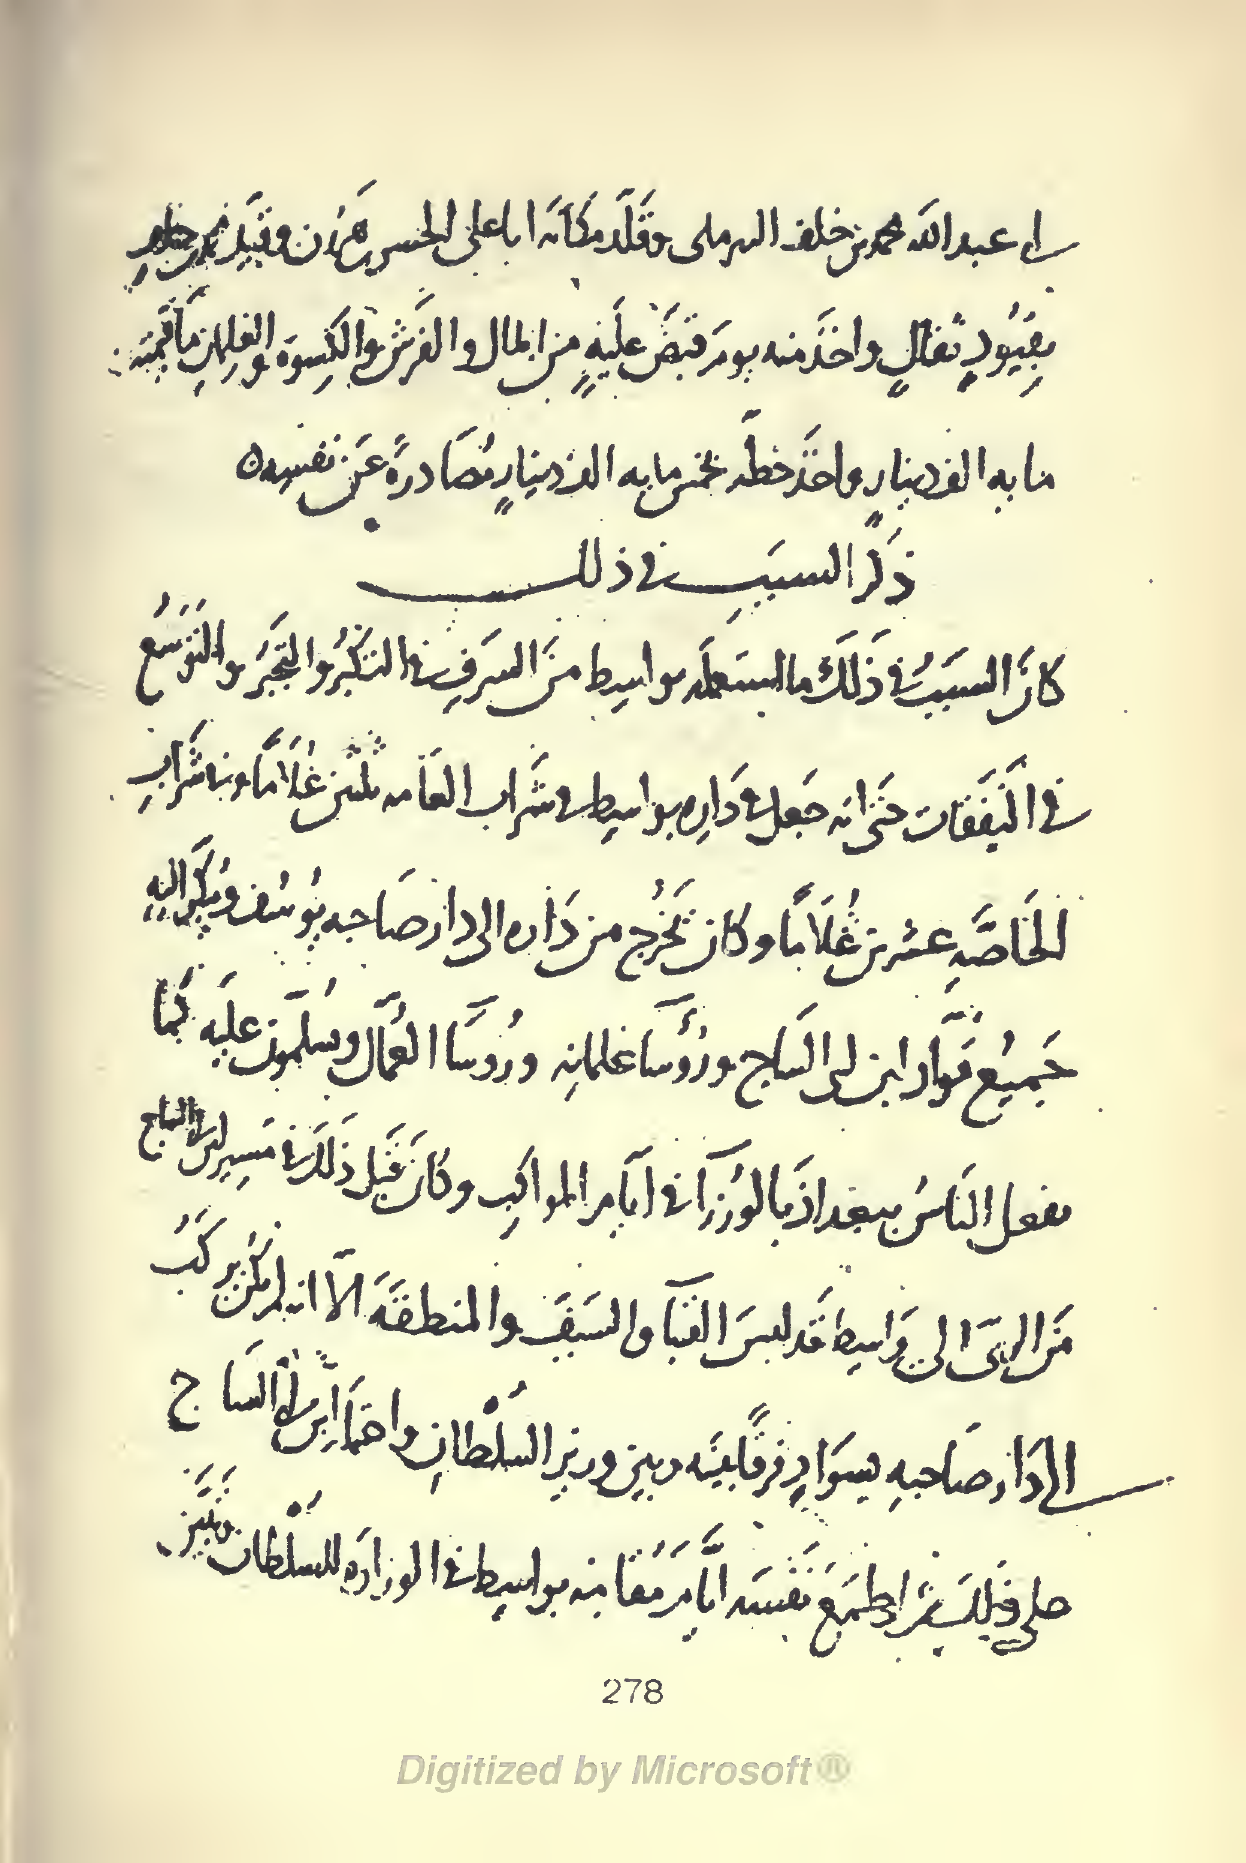 ابى عبد الله محمد بن خلف النيرمانى وقلد مكانه ابا على الحسن بن هرون وقيد محمد بن خلف
بقيود ثقال واخذ منه يوم قبض عليه من المال والفرش والكسوة والغلمان ما قيمته
مايه الف دينار واخذ خطه بخمس مايه الف دينار مصادرة عن نفسه ه
ذكر السبب فى ذلك
كان السبب فى ذلك ما استعمله بواسط من السرف فى التكبر والتجبر والتوسع
فى النفقات حتى انه جعل فى داره بواسط فى شراب العامه ثلثين غلاما وفى شراب
الخاصه عشرين غلاما وكان يخرج من داره الى دار صاحبه يوسف ويبكر اليه
جميع قواد ابن ابى الساج ورؤسا غلمانه ورؤسا العمال ويسلمون عليه كما
يفعل الناس ببغداذ بالوزرا فى ايام المواكب وكان قبل ذلك فى مسير ابن ابى الساج
من الرى الى واسط قد لبس القبا والسيف والمنطقه الا انه لم يكن يركب
الى دار صاحبه بسواد فرقا بينه وبين وزير السلطان واحتمله ابن ابى الساج
على ذلك ثم اطمع نفسه ايام مقامه بواسط فى الوزاره للسلطان
278
Digitized by Microsoft®